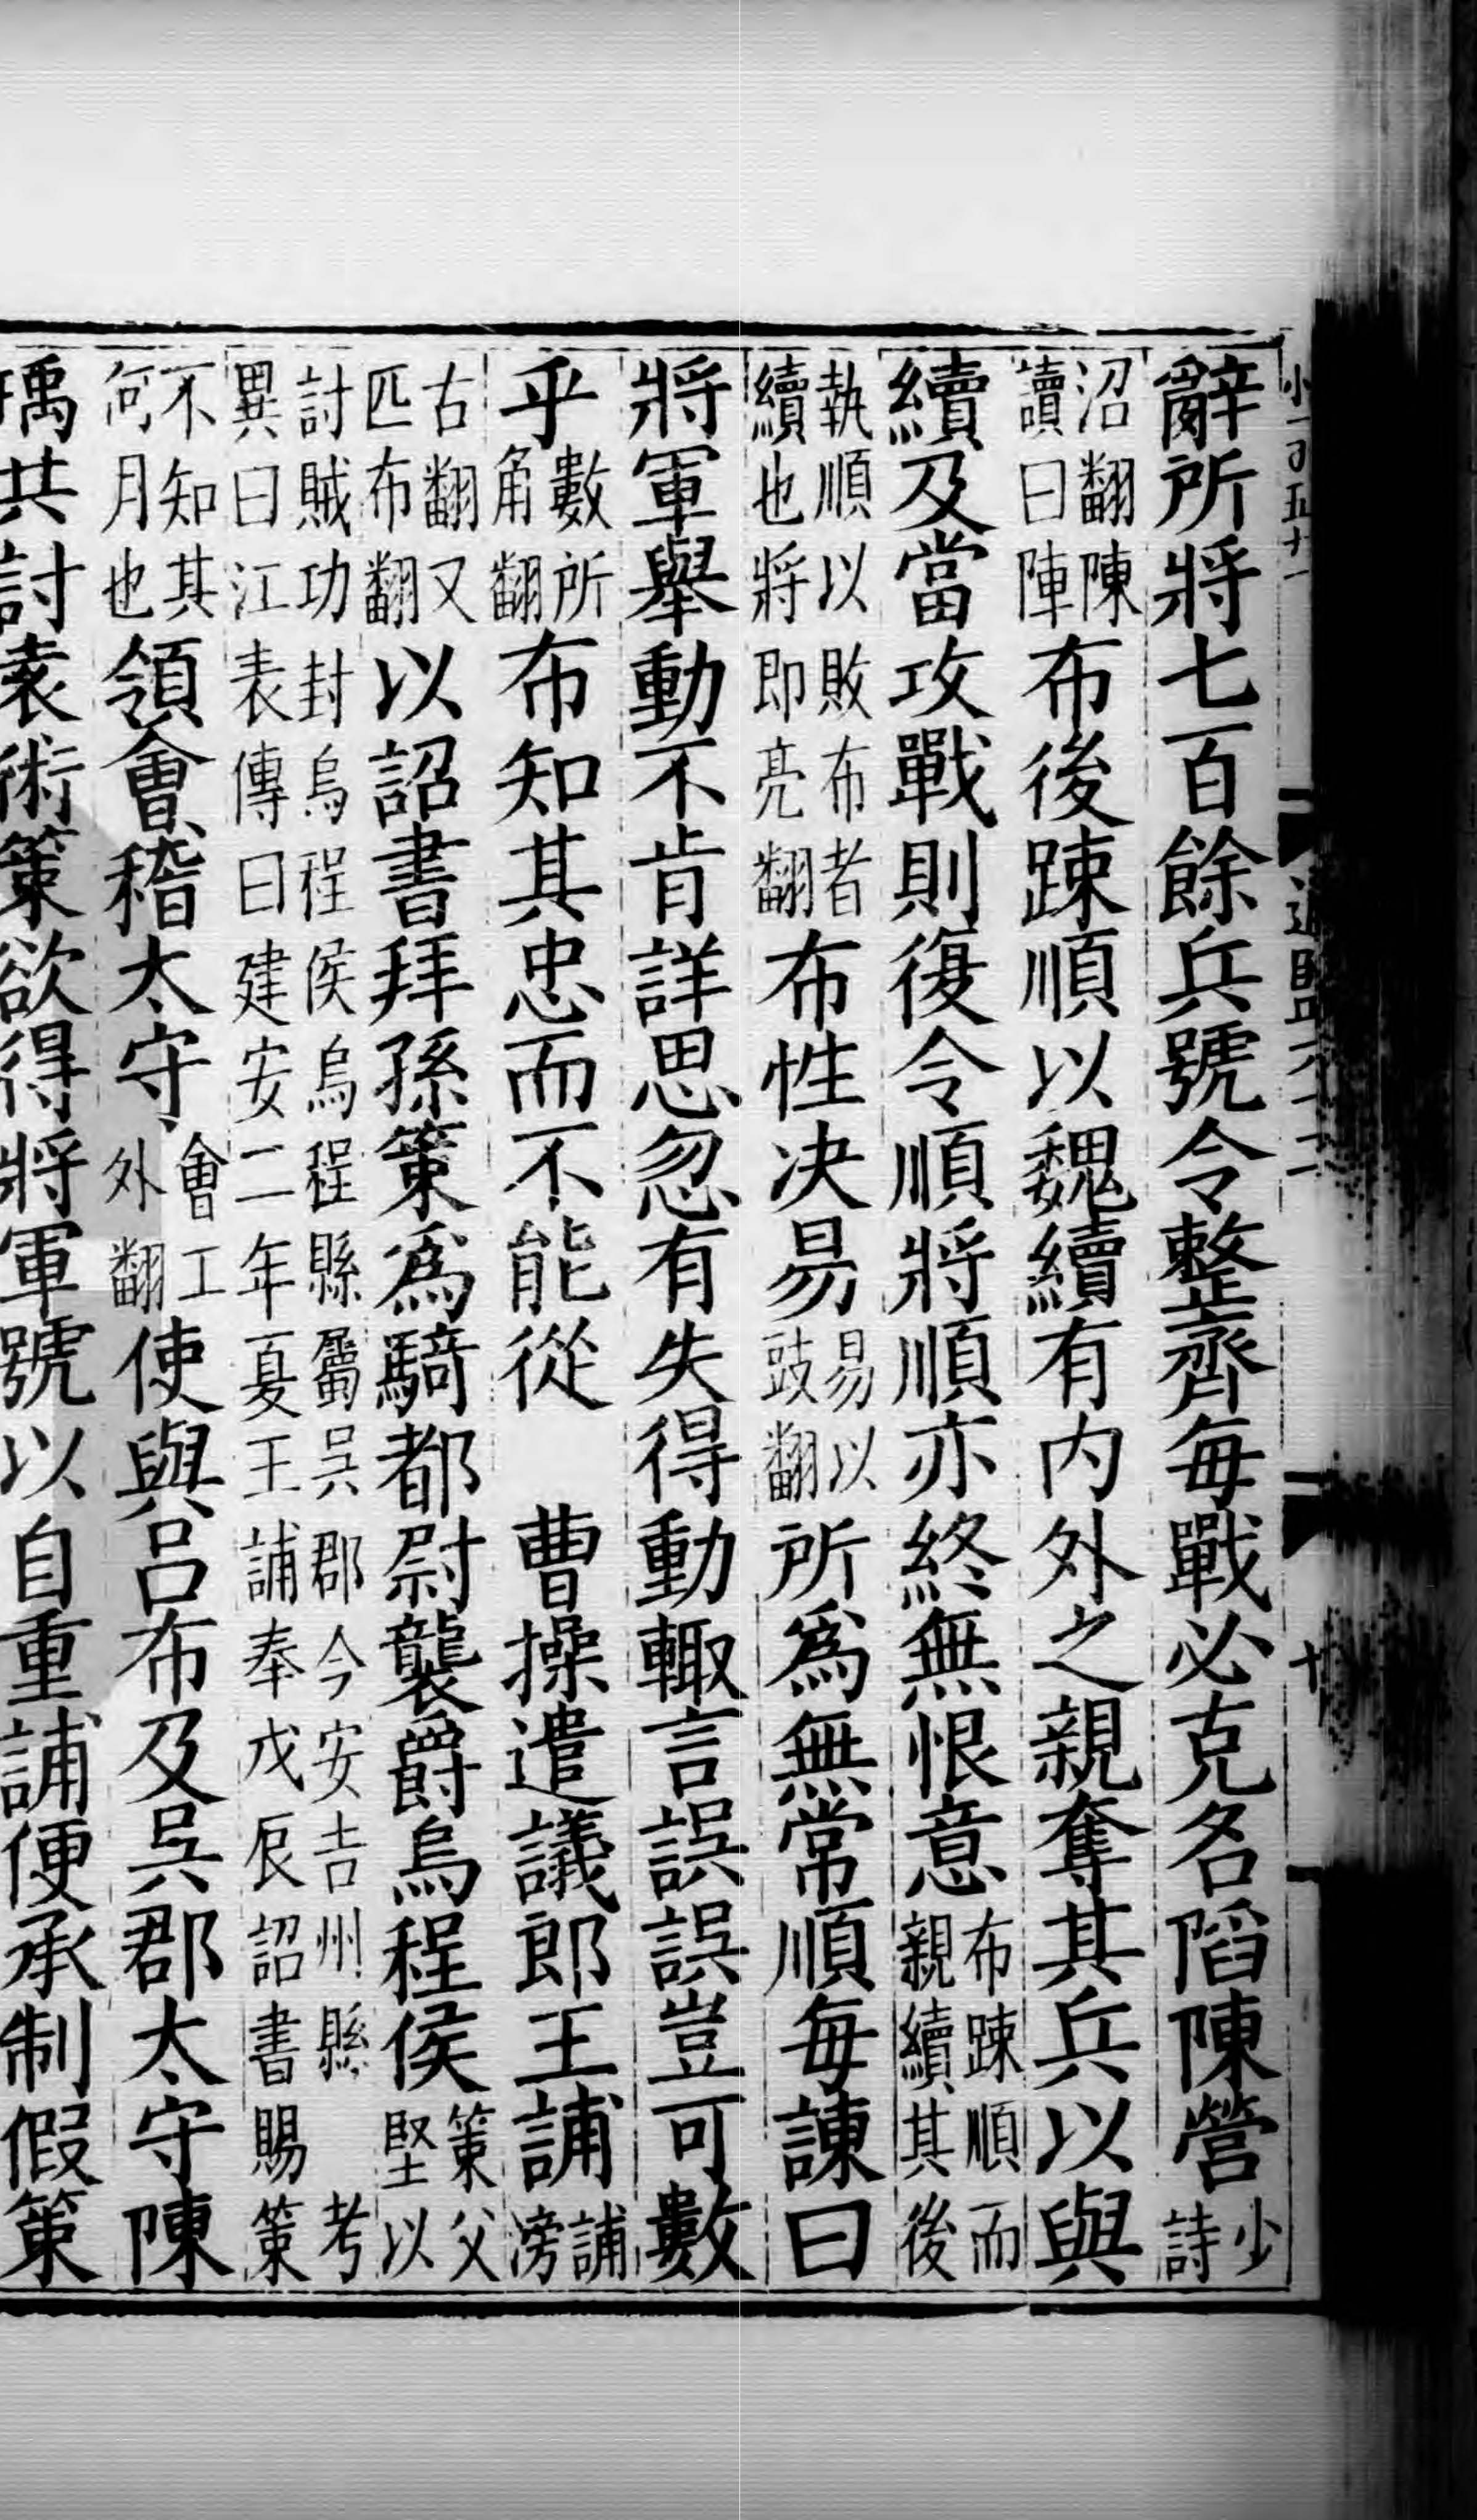 辭所將七百餘兵號令整齊每戰必克名陷陳營少詩
沼翻陳讀曰陣布後踈順以魏續有内外之親奪其兵以與
續及當攻戰則復令順將順亦終無恨意布踈順而親續其後
執順以敗布者續也將即亮翻布性决易易以豉翻所爲無常順每諫曰
將軍舉動不肯詳思忽有失得動輙言誤誤豈可數
乎數所角翻布知其忠而不能從 曹操遣議郎王誧誧滂
古翻又匹布翻以詔書拜孫策爲騎都尉襲爵烏程侯策父堅以
討賊功封烏程侯烏程縣屬吳郡今安吉州縣 考異曰江表傳曰建安二年夏王誧奉戊辰詔書賜策
不知其何月也領會稽太守會工外翻使與呂布及吳郡太守陳
瑀共討袁術策欲得將軍號以自重誧便承制假策